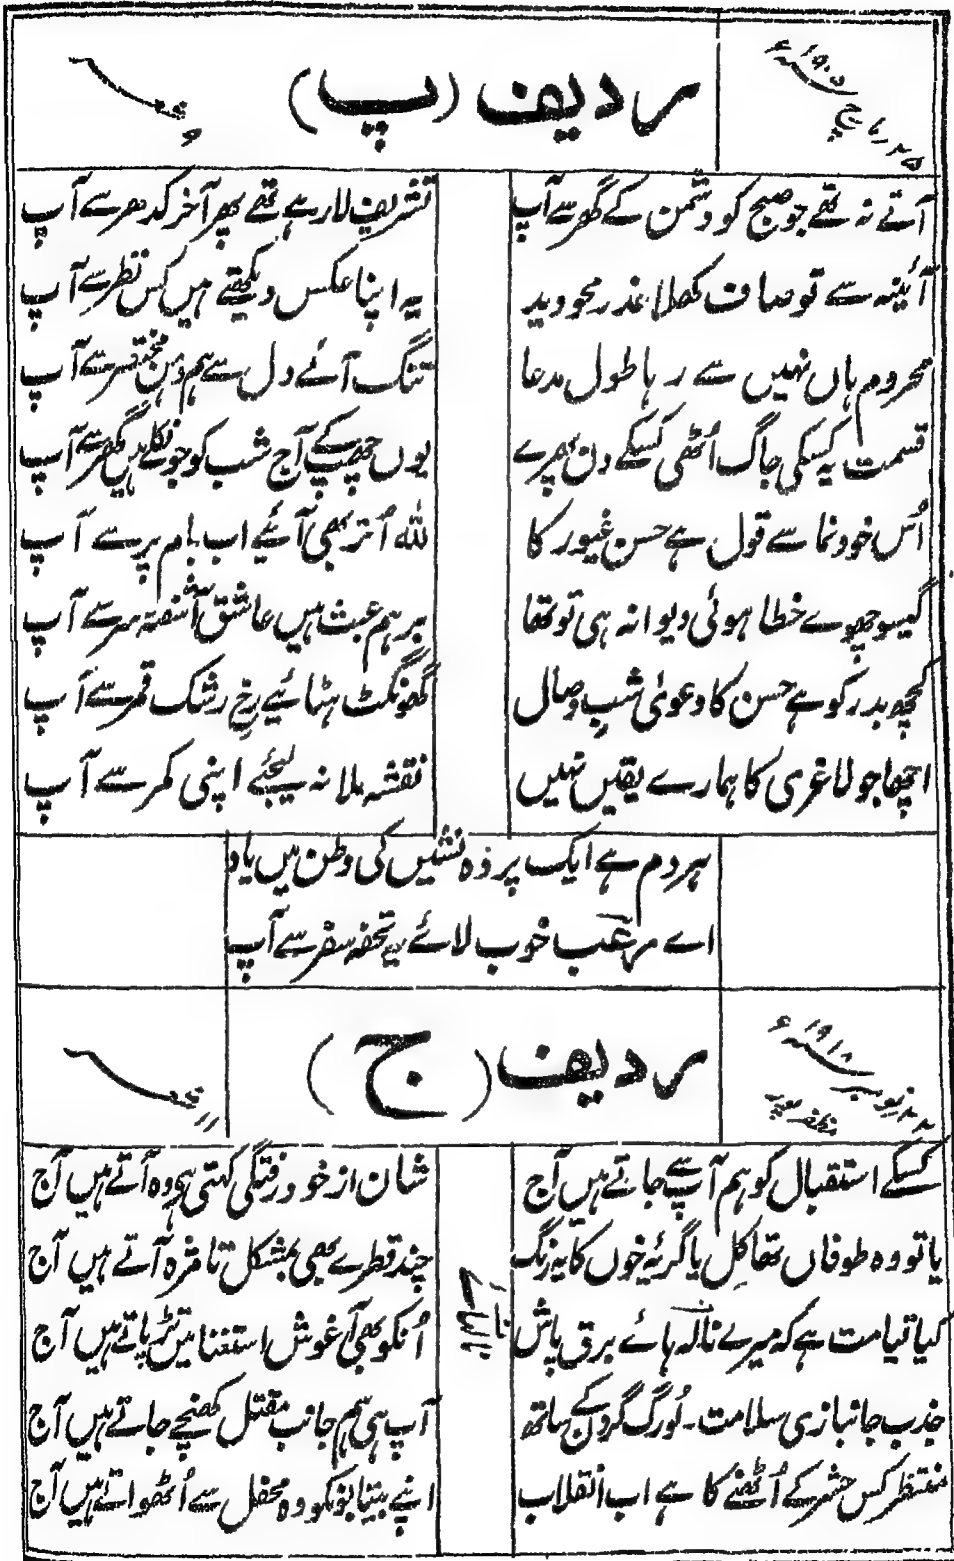 ۲۵ مارچ ۱۹۰۵ء
ردیف (پ)
آتے نہ تھے جو صبح کو دشمن کے گھر سے آپ
تشریف لا رہے تھے پھر آخر کدھر سے آپ
آئینہ سے تو صاف کھلا عذر محو دید
یہ اپنا عکس دیکھتے ہیں کس نظر سے آپ
محروم ہاں نہیں سے رہا طول مدعا
تنگ آئے دل سے ہم دہن مختصر سے آپ
قسمت یہ کسکی جاگ اُٹھی کسکے دن پھرے
یوں چھپکے آج شب کو جو نکلے ہیں گھر سے آپ
اُس خود نما سے قول ہے حسن غیور کا
للہ اُتر بھی آئیے اب بام پر سے آپ
گیسو چھوے خطا ہوئی دیوانہ ہی تو تھا
برہم عبث ہیں عاشق آشفتہ سر سے آپ
کچھ بدر کو ہے حسن کا دعویٰ شبِ وصال
گھونگٹ ہٹائیے رخِ رشک قمر سے آپ
اچھا جو لاغری کا ہمارے یقیں نہیں
نقشہ ملا نہ لیجئے اپنی کمر سے آپ
ہر دم ہے ایک پردہ نشیں کی وطن میں یاد
اے مہر عجب خوب لائے یہ تحفہ سفر سے آپ
۲۲ نومبر ۱۹۱۸ء
مظفر پور
ردیف (ج)
کسکے استقبال کو ہم آپ سے جاتے ہیں آج
شان از خود رفتگی کہتی ہی وہ آتے ہیں آج
یا تو وہ طوفاں تھا کل یا گرئیہ خوں کا یہ رنگ
چند قطرے بھی بمشکل تا مژہ آتے ہیں آج
کیا قیامت ہے کہ میرے نالہ ہائے برق پاش
اُنکو بھی آغوش استغنا میں تڑپاتے ہیں آج
جذب جانبازی سلامت۔ لو رگ گردن کے ساتھ
آپ ہی ہم جانب مقتل کھنچے جاتے ہیں آج
منتظر کس حشر کے اُٹھنے کا ہے اب انقلاب
اپنے بیتابونکو وہ محفل سے اُٹھواتے ہیں آج